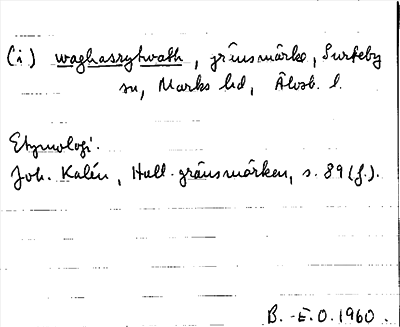 (i) waghasrytwath, gränsmärke, Surteby
sn, Marks hd, Älvsb. l.
Etymologi.
Joh. Kalén, Hall. gränsmärken, s. 89 (f.).
B.-E.O. 1960.